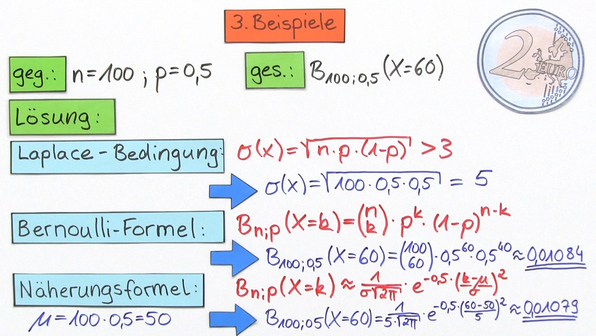 3. Beispiele
2 EURO
geg.: n=100 ; p=0,5 ges.: B₁₀₀;₀,₅(X=60)
Lösung:
Laplace-Bedingung: σ(x)=√(n·p·(1-p)) >3
σ(x)=√(100·0,5·0,5) = 5
Bernoulli-Formel: Bₙ;ₚ(X=k)=(n über k)·p^k·(1-p)^(n-k)
B₁₀₀;₀,₅(X=60)=(100 über 60)·0,5^60·0,5^40≈0,01084
Näherungsformel: Bₙ;ₚ(X=k)≈1/(σ√(2π))·e^(-0,5·((k-μ)/σ)^2)
μ=100·0,5=50 B₁₀₀;₀₅(X=60)=1/(5·√(2π))·e^(-0,5·((60-50)/5)^2)≈0,01079